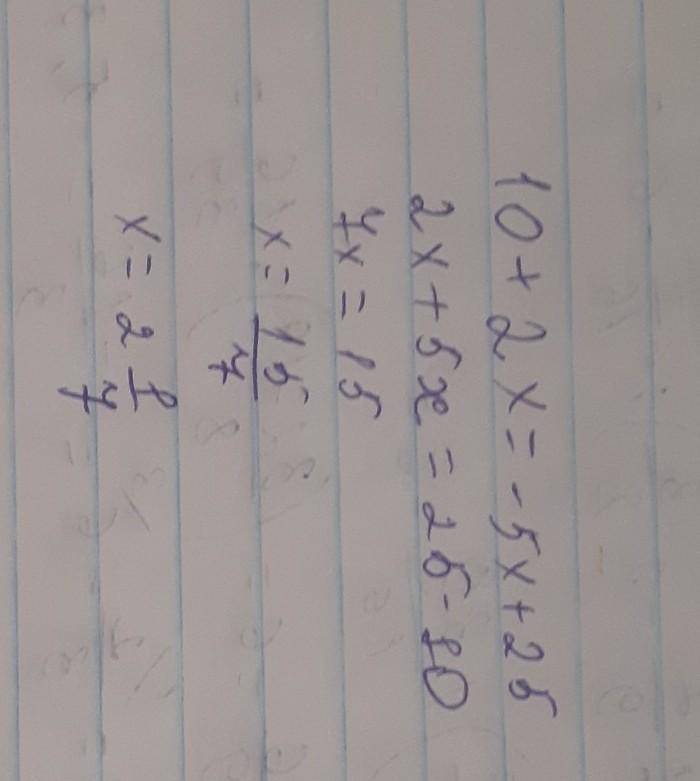 10 + 2x = -5x + 25
2x + 5x = 25 - 10
7x = 15
x = 15/7
x = 2 1/7